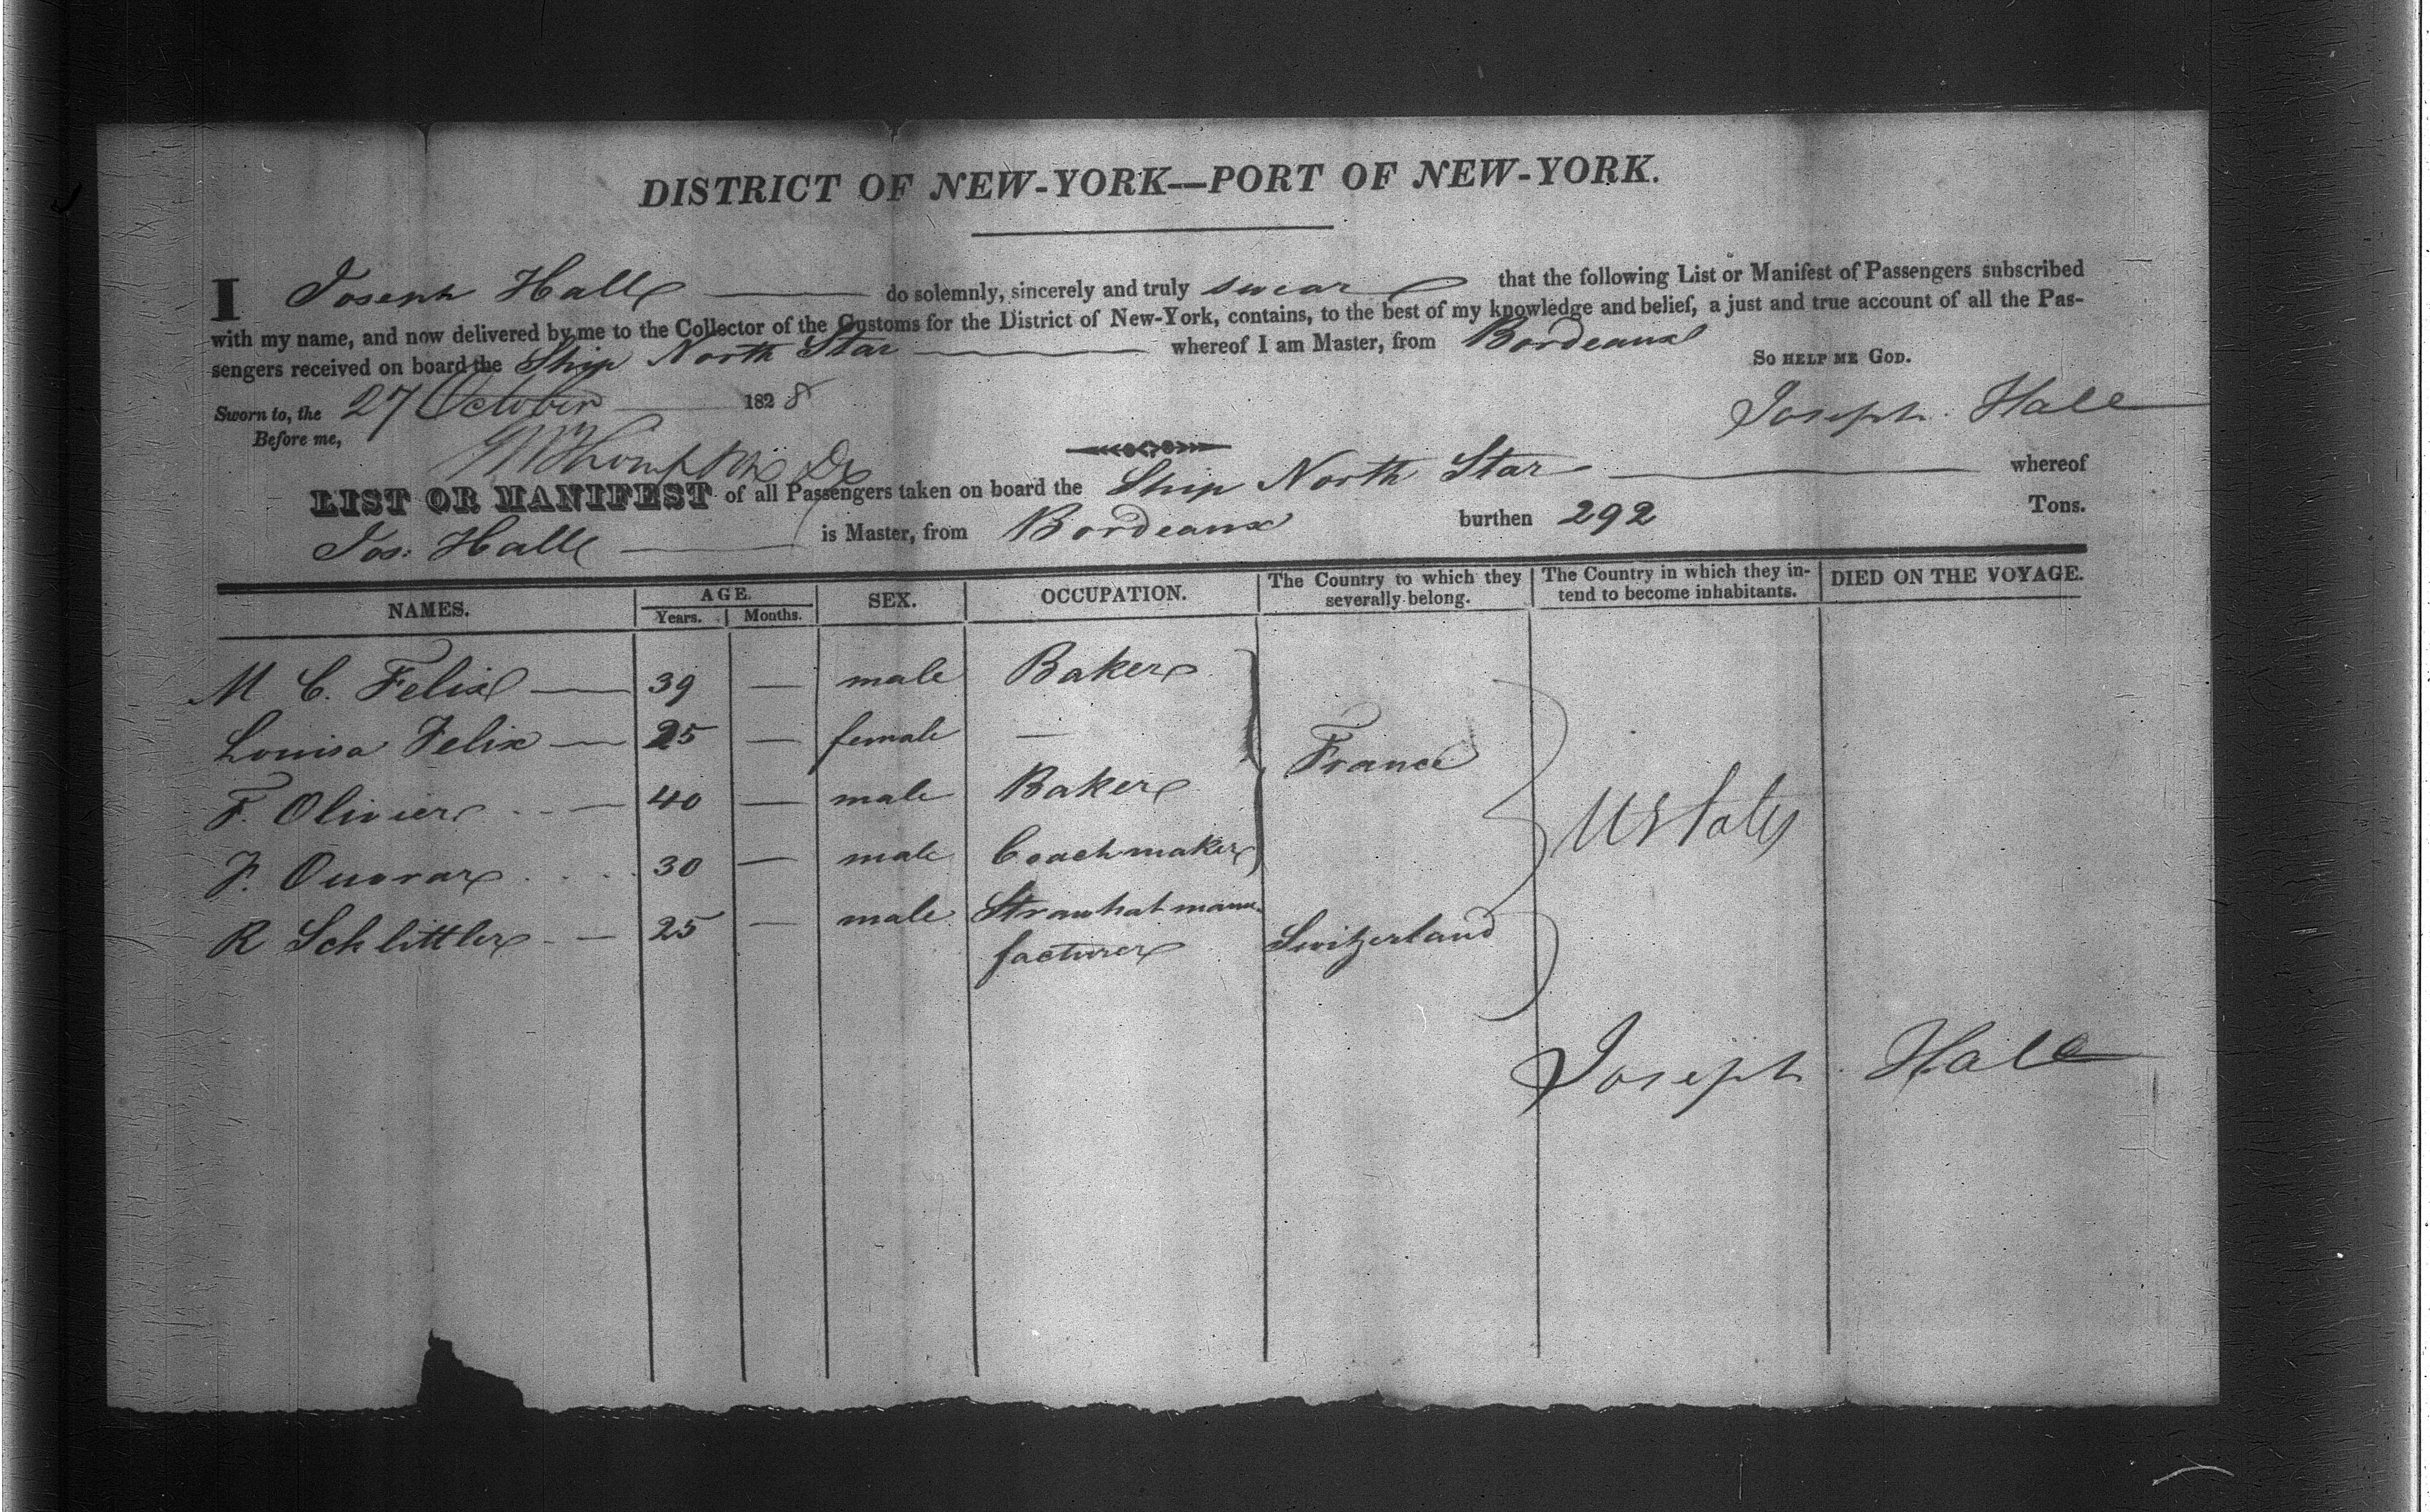 DISTRICT OF NEW-YORK—PORT OF NEW-YORK.
I Joseph Hall do solemnly, sincerely and truly swear that the following List or Manifest of Passengers subscribed
with my name, and now delivered by me to the Collector of the Customs for the District of New-York, contains, to the best of my knowledge and belief, a just and true account of all the Pas-
sengers received on board the Ship North Star whereof I am Master, from Bordeaux
So help me God.
Sworn to, the 27 October 1828
Joseph Hall
Before me,
Thompson
LIST OR MANIFEST of all Passengers taken on board the Ship North Star whereof
Jos. Hall is Master, from Bordeaux burthen 292 Tons.
NAMES. AGE. Years. Months. SEX. OCCUPATION. The Country to which they severally belong. The Country in which they in-tend to become inhabitants. DIED ON THE VOYAGE.
M C. Felix — 39 — male Baker
Louisa Felix — 25 — female —
France
F. Olivier — 40 — male Baker
U States
F. 30 — male Coachmaker
R Schlittler — 25 — male Strawhat manu-
facturer Switzerland
Joseph Hall